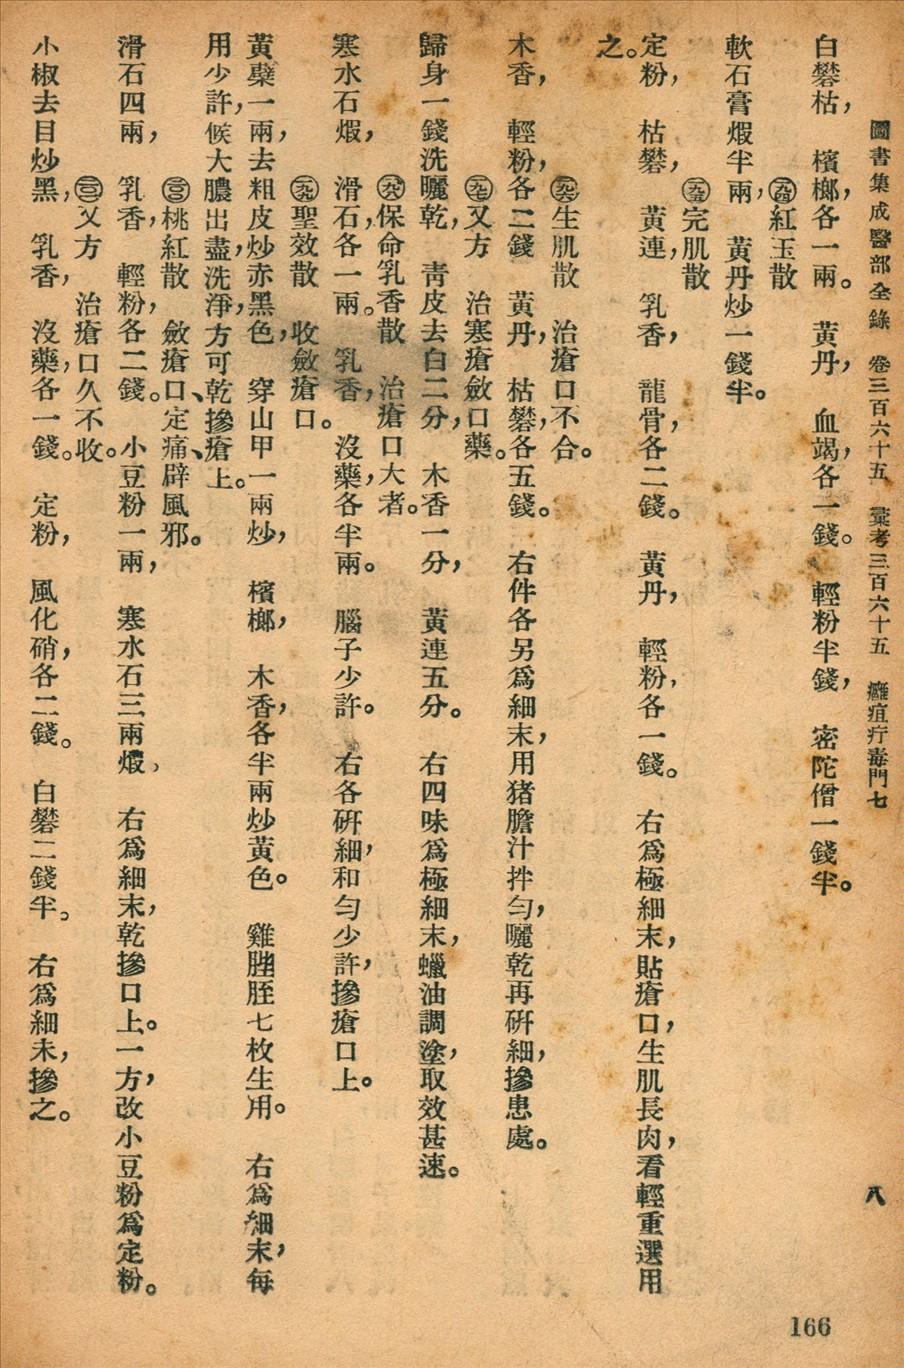 圖書集成醫部全錄　卷三百六十五　彙考三百六十五　癰疽疔毒門七　八
白礬枯，　檳榔，各一兩。　黃丹，　血竭，各一錢。　輕粉半錢，　密陀僧一錢半。
紅玉散
軟石膏煅半兩，　黃丹炒一錢半。
完肌散
定粉，　枯礬，　黃連，　乳香，　龍骨，各二錢。　黃丹，　輕粉，各一錢。　右爲極細末，貼瘡口，生肌長肉，看輕重選用
之。
生肌散　治瘡口不合。
木香，　輕粉，各二錢　黃丹，　枯礬，各五錢。　右件各另爲細末，用猪膽汁拌勻，曬乾再研細，摻患處。
又方　治寒瘡斂口藥。
歸身一錢洗曬乾，　靑皮去白二分，　木香一分，　黃連五分。　右四味爲極細末，蠟油調塗，取效甚速。
保命乳香散　治瘡口大者。
寒水石煅，　滑石，各一兩。　乳香，　沒藥，各半兩。　腦子少許。　右各研細，和勻少許，摻瘡口上。
聖效散　收斂瘡口。
黃蘗一兩，去粗皮炒赤黑色，　穿山甲一兩炒，　檳榔，　木香，各半兩炒黃色。　雞膍胵七枚生用。　右爲細末，每
用少許，候大膿出盡洗淨，方可乾摻瘡上。
桃紅散　斂瘡口、定痛、辟風邪。
滑石四兩，　乳香，　輕粉，各二錢。　小豆粉一兩，　寒水石三兩煅，　右爲細末，乾摻口上。一方，改小豆粉爲定粉。
又方　治瘡口久不收。
小椒去目炒黑，　乳香，　沒藥，各一錢。　定粉，　風化硝，各二錢。　白礬二錢半。　右爲細末，摻之。
166